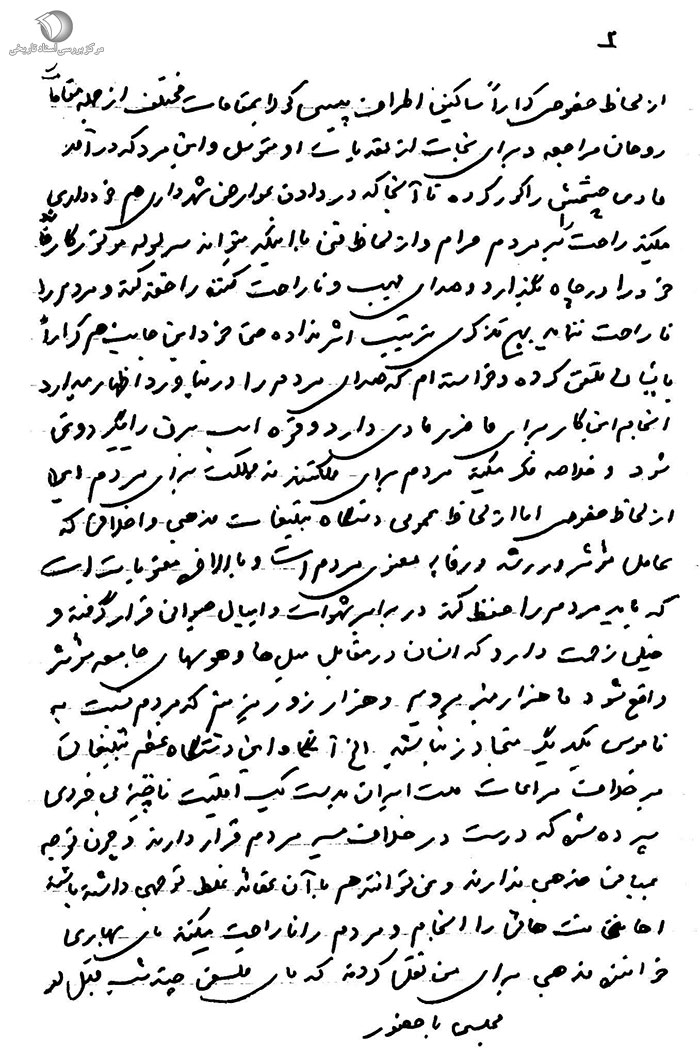 مرکز بررسی اسناد تاریخی
۲
از لحاظ خصوصی کراراً ساکنین اطراف پپسی کولا بمقامات مختلف از جمله مقامات
روحانی مراجعه و برای نجات از تعدیات او متوسل و این مرد که درآمد
مادی چشمش را کور کرده تا آنجا که در دادن عوارض شهرداری هم خودداری
میکند راحت را بر مردم حرام و از لحاظ فنی با اینکه میتواند سر لوله موتور کارخانه
خود را در چاه بگذارد و صدای مهیب و ناراحت کننده را خفه کند و مردم را
ناراحت ننماید بهیچ تذکری ترتیب اثر نداده حتی خود این جانب هم کراراً
بایشان تلفن کرده و خواسته‌ام که صدای مردم را در نیاورد اظهار میدارد
انجام این کار برای ما ضرر مادی دارد و قوه اسب برق را باید
شود و خلاصه فکر میکند مردم برای مملکتند نه مملکت برای مردم این
از لحاظ خصوصی اما از لحاظ عمومی دستگاه تبلیغات مذهبی و اخلاقی که
عامل مؤثر در رشد و رفاه معنوی مردم است و بالاخره معنویات است
که باید مردم را حفظ کند در برابر شهوات و امیال حیوانی قرار گرفته و
خیلی زحمت دارد که انسان در مقابل میل‌ها و هوسهای جامعه مؤثر
واقع شود ما هزار منبر برویم و هزار زور بزنیم که مردم نسبت به
ناموس یکدیگر متجاوز نباشند الخ آنگاه این دستگاه عظیم تبلیغات
برخلاف مراعات ملت ایران بدست یک اقلیت ناچیز بی خردی
سپرده شده که درست در خلاف مسیر مردم قرار دارند و چون توجه
بمبانی مذهبی ندارند و نمی‌توانند هم با آن عقائد غلط توجهی داشته باشند
را انجام و مردم را ناراحت میکنند آقای بهاری
خواننده مذهبی برای من نقل کردند که آقای فلسفی چند شب قبل در
مجلسی با حضور